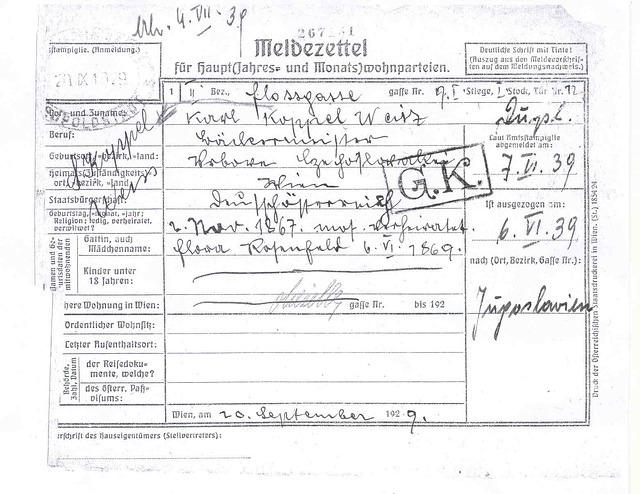 4. VII. 39
267
Meldezettel
für Haupt(Jahres= und Monats)wohnparteien.
stampiglie. (Anmeldung.)
Deutliche Schrift mit Tinte!
(Auszug aus den Meldevorschrif-
ten auf dem Meldungsnachweis.)
20 IX 19 9
1 II Bez., Flossgasse gasse Nr. 9. I Stiege, 1 Stock, Tür Nr. 12
Vor- und Zuname: Karl Koppel Weisz
Beruf: Bäckermeister
Geburtsort, -bezirk, -land:
Heimats(Zuständigkeits)-
ort, -bezirk, -land: Wien
Staatsbürgerschaft: Deutschösterreich
Geburtstag, -monat, -jahr;
Religion; ledig, verheiratet,
verwitwet? 2. Nov. 1867. mos. verheiratet.
Gattin, auch
Mädchenname: Flora Rosenfeld 6. VI. 1869.
Kinder unter
18 Jahren:
Koppel
Weiss
G.K.
Laut Amtsstampiglie
abgemeldet am:
7. VI. 39
Ist ausgezogen am:
6. VI. 39
nach (Ort, Bezirk, Gasse Nr.):
Jugoslavien
here Wohnung in Wien: gasse Nr. bis 192
Ordentlicher Wohnsitz:
Letzter Aufenthaltsort:
Behörde,
Zahl, Datum
der Reisedoku-
mente, welche?
des österr. Paß-
visums:
Wien, am 20. September 1929.
erschrift des Hauseigentümers (Stellvertreters):
Druck der Österreichischen Staatsdruckerei in Wien. (St.) 1854 24